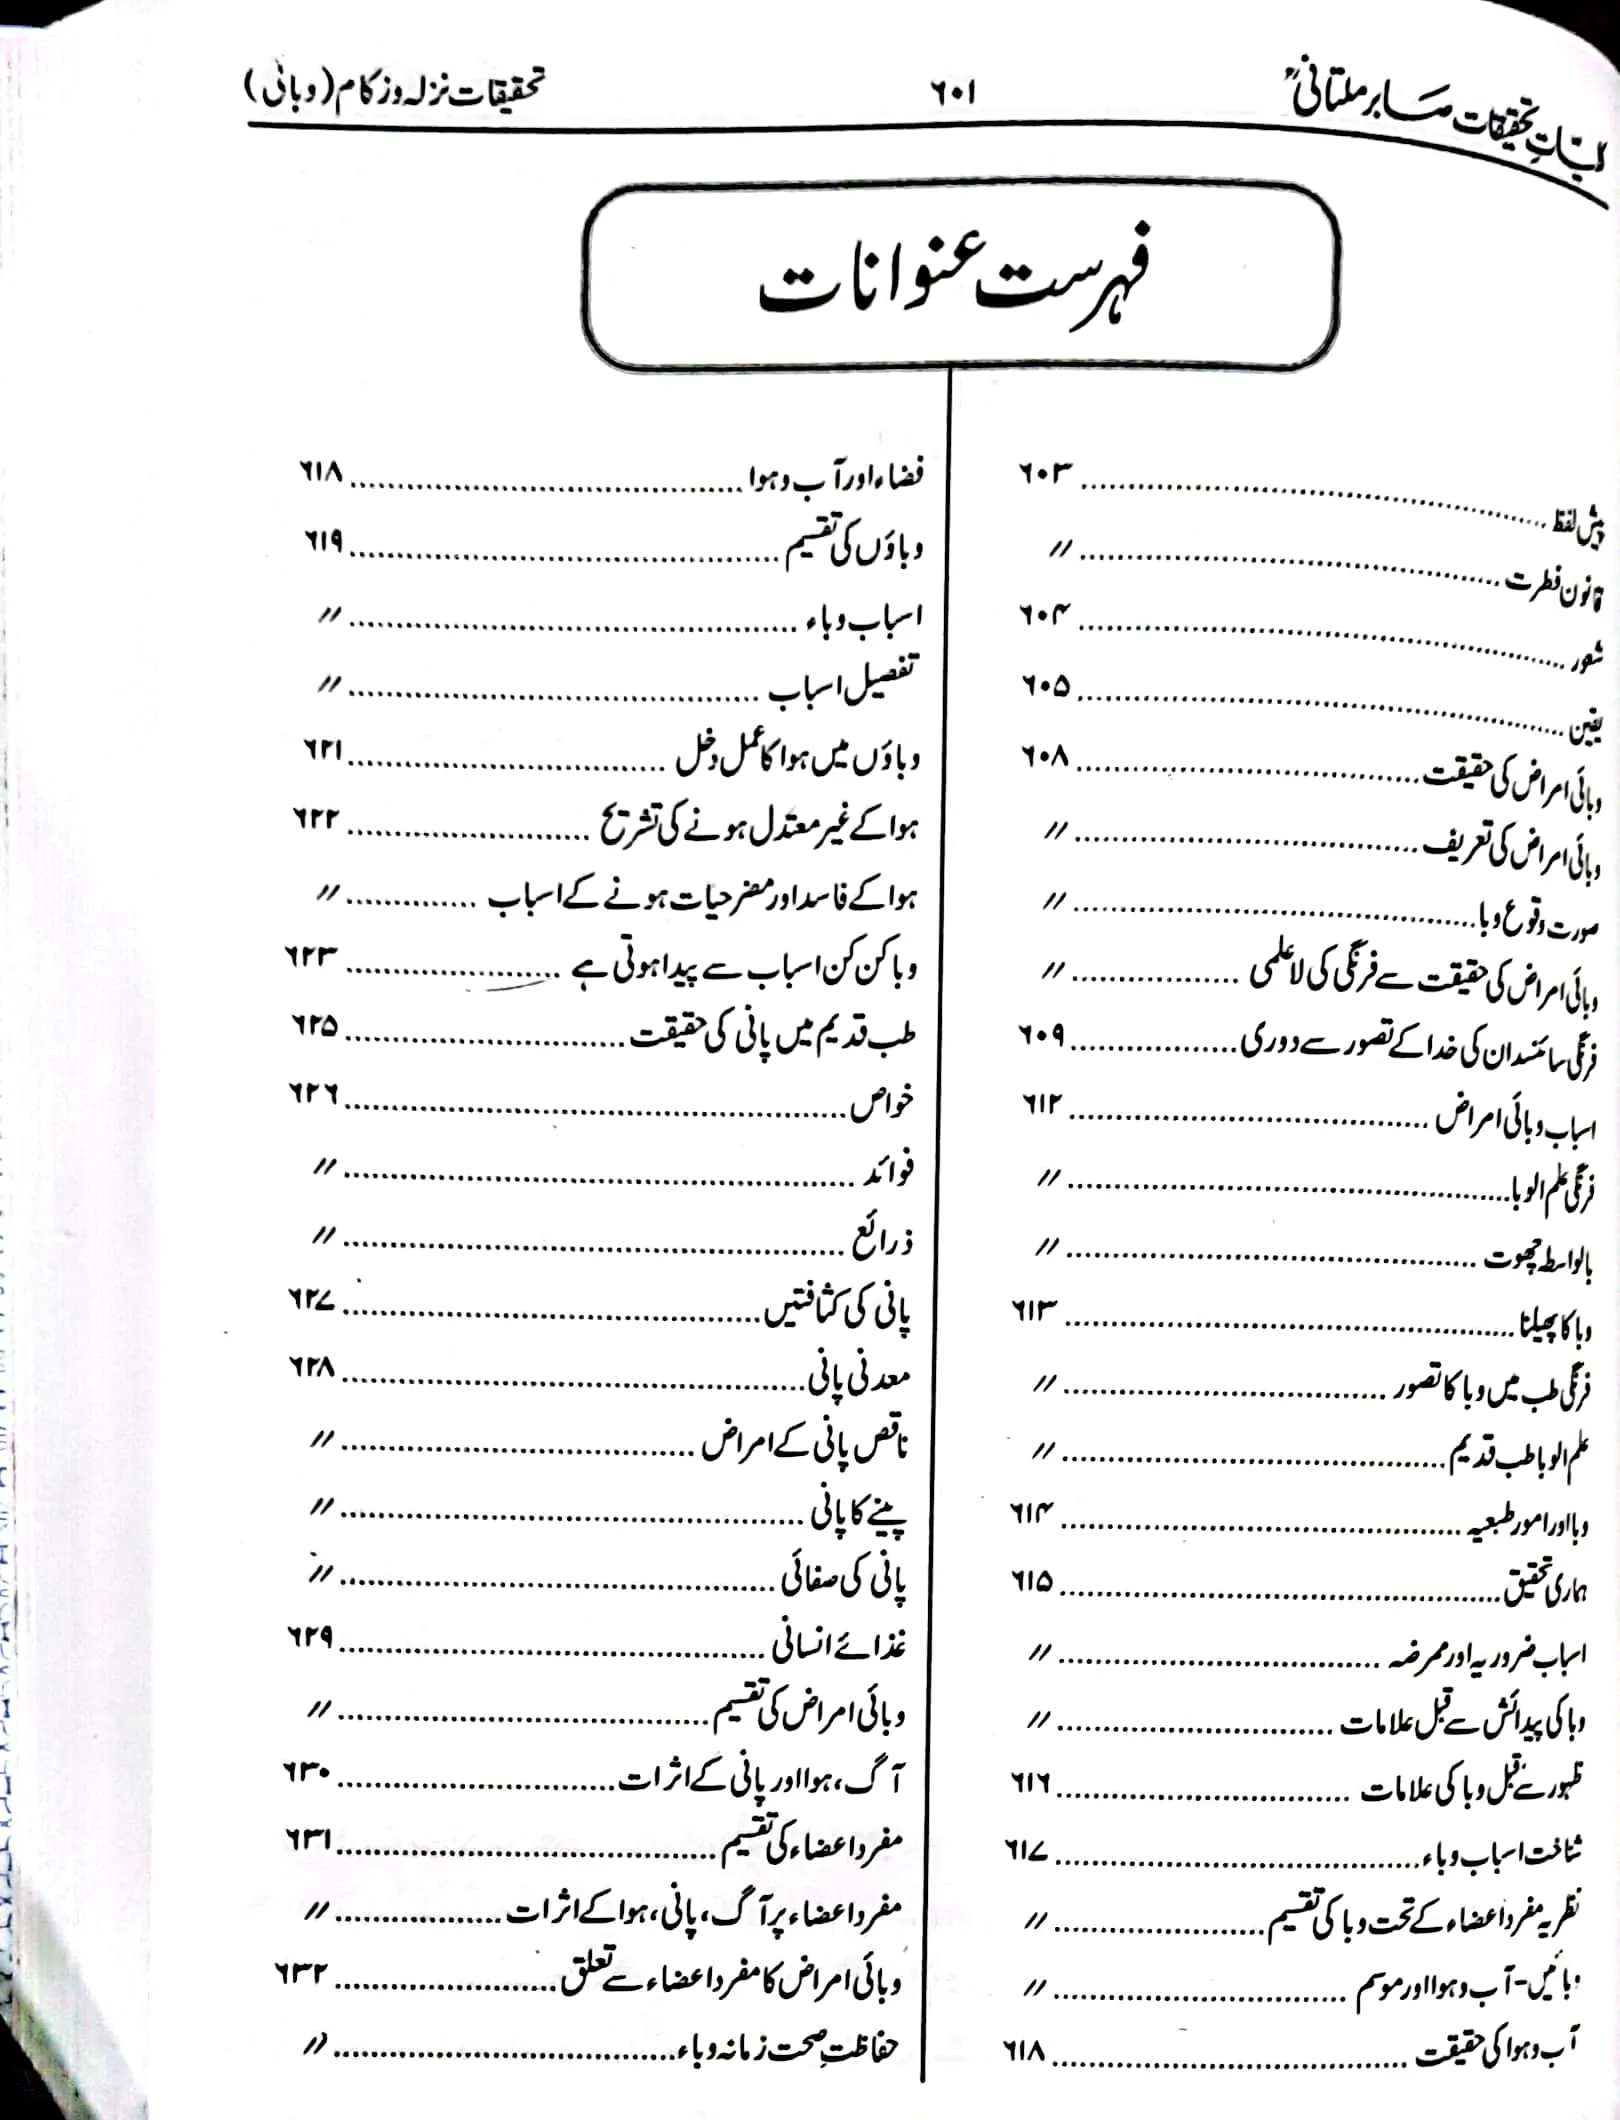 کلیات تحقیقات صابر ملتانیؒ ۶۰۱ تحقیقات نزلہ و زکام (وبائی)
فہرست عنوانات
پیش لفظ ۶۰۳
قانون فطرت //
شعور ۶۰۴
یقین ۶۰۵
وبائی امراض کی حقیقت ۶۰۸
وبائی امراض کی تعریف //
صورت وقوع وبا //
وبائی امراض کی حقیقت سے فرنگی کی لاعلمی //
فرنگی سائنسدان کی خدا کے تصور سے دوری ۶۰۹
اسباب وبائی امراض ۶۱۲
فرنگی علم الوبا //
بالواسطہ چھوت //
وبا کا پھیلنا ۶۱۳
فرنگی طب میں وبا کا تصور //
علم الوبا طب قدیم //
وبا اور امور طبعیہ ۶۱۴
ہماری تحقیق ۶۱۵
اسباب ضروریہ اور ممرضہ //
وبا کی پیدائش سے قبل علامات //
ظہور سے قبل وبا کی علامات ۶۱۶
شناخت اسباب وباء ۶۱۷
نظریہ مفرد اعضاء کے تحت وبا کی تقسیم //
وبائیں - آب و ہوا اور موسم //
آب و ہوا کی حقیقت ۶۱۸
فضاء اور آب و ہوا ۶۱۸
وباؤں کی تقسیم ۶۱۹
اسباب وباء //
تفصیل اسباب //
وباؤں میں ہوا کا عمل دخل ۶۲۱
ہوا کے غیر معتدل ہونے کی تشریح ۶۲۲
ہوا کے فاسد اور مضر حیات ہونے کے اسباب //
وبا کن کن اسباب سے پیدا ہوتی ہے ۶۲۳
طب قدیم میں پانی کی حقیقت ۶۲۵
خواص ۶۲۶
فوائد //
ذرائع //
پانی کی کثافتیں ۶۲۷
معدنی پانی ۶۲۸
ناقص پانی کے امراض //
پینے کا پانی //
پانی کی صفائی //
غذائے انسانی ۶۲۹
وبائی امراض کی تقسیم //
آگ، ہوا اور پانی کے اثرات ۶۳۰
مفرد اعضاء کی تقسیم ۶۳۱
مفرد اعضاء پر آگ، پانی، ہوا کے اثرات //
وبائی امراض کا مفرد اعضاء سے تعلق ۶۳۲
حفاظتِ صحت زمانہ وباء //